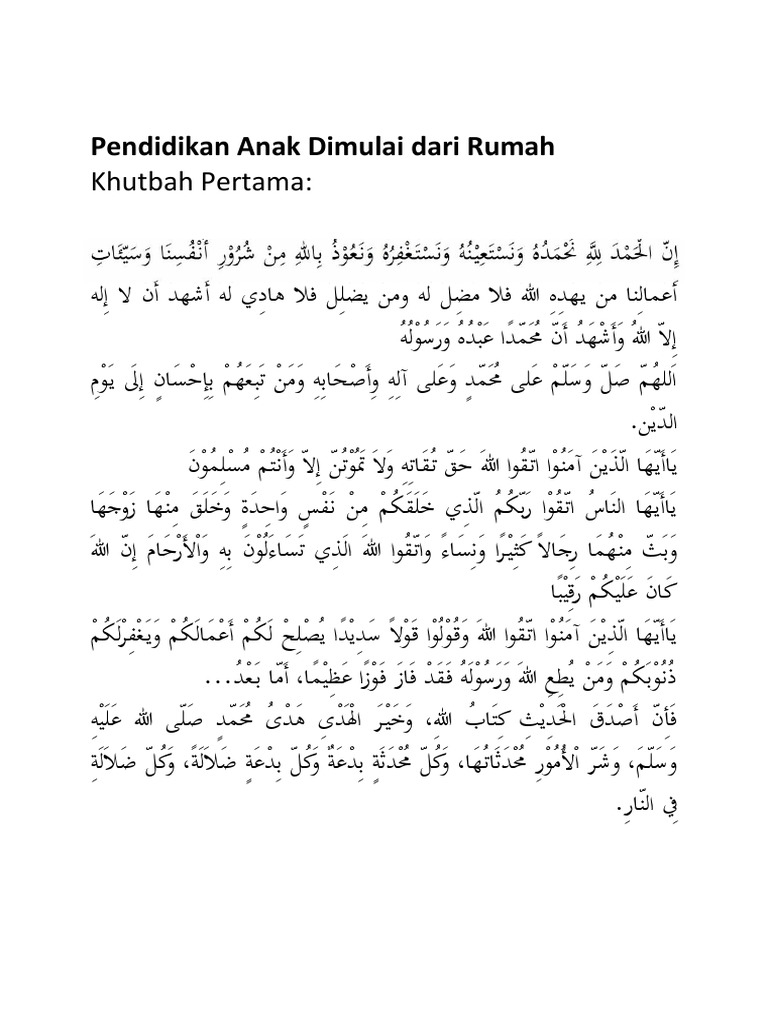 Pendidikan Anak Dimulai dari Rumah
Khutbah Pertama:
إِنّ الْحَمْدَ لِلَّهِ نَحْمَدُهُ وَنَسْتَعِيْنُهُ وَنَسْتَغْفِرُهُ وَنَعُوْذُ بِاللهِ مِنْ شُرُوْرِ أَنْفُسِنَا وَسَيّئَاتِ
أعمالِنا من يهدِهِ الله فلا مضِل له ومن يضلِل فلا هادِي له أشهد أن لا إِله
إِلاّ اللهُ وَأَشْهَدُ أَنّ مُحَمّدًا عَبْدُهُ وَرَسُوْلُهُ
اَللهُمّ صَلّ وَسَلّمْ عَلى مُحَمّدٍ وَعَلى آلِهِ وِأَصْحَابِهِ وَمَنْ تَبِعَهُمْ بِإِحْسَانٍ إِلَى يَوْمِ
الدّيْن.
يَاأَيّهَا الّذَيْنَ آمَنُوْا اتّقُوا اللهَ حَقّ تُقَاتِهِ وَلاَ تَمُوْتُنّ إِلاّ وَأَنْتُمْ مُسْلِمُوْنَ
يَاأَيّهَا النَاسُ اتّقُوْا رَبّكُمُ الّذِي خَلَقَكُمْ مِنْ نَفْسٍ وَاحِدَةٍ وَخَلَقَ مِنْهَا زَوْجَهَا
وَبَثّ مِنْهُمَا رِجَالاً كَثِيْرًا وَنِسَاءً وَاتّقُوا اللهَ الَذِي تَسَاءَلُوْنَ بِهِ وَالْأَرْحَامَ إِنّ اللهَ
كَانَ عَلَيْكُمْ رَقِيْبًا
يَاأَيّهَا الّذِيْنَ آمَنُوْا اتّقُوا اللهَ وَقُوْلُوْا قَوْلاً سَدِيْدًا يُصْلِحْ لَكُمْ أَعْمَالَكُمْ وَيَغْفِرْلَكُمْ
ذُنُوْبَكُمْ وَمَنْ يُطِعِ اللهَ وَرَسُوْلَهُ فَقَدْ فَازَ فَوْزًا عَظِيْمًا، أَمّا بَعْدُ…
فَأِنّ أَصْدَقَ الْحَدِيْثِ كِتَابُ اللهِ، وَخَيْرَ الْهَدْىِ هَدْىُ مُحَمّدٍ صَلّى الله عَلَيْهِ
وَسَلّمَ، وَشَرّ الْأُمُوْرِ مُحْدَثَاتُهَا، وَكُلّ مُحْدَثَةٍ بِدْعَةٌ وَكُلّ بِدْعَةٍ ضَلاَلَةً، وَكُلّ ضَلاَلَةِ
فِي النّارِ.